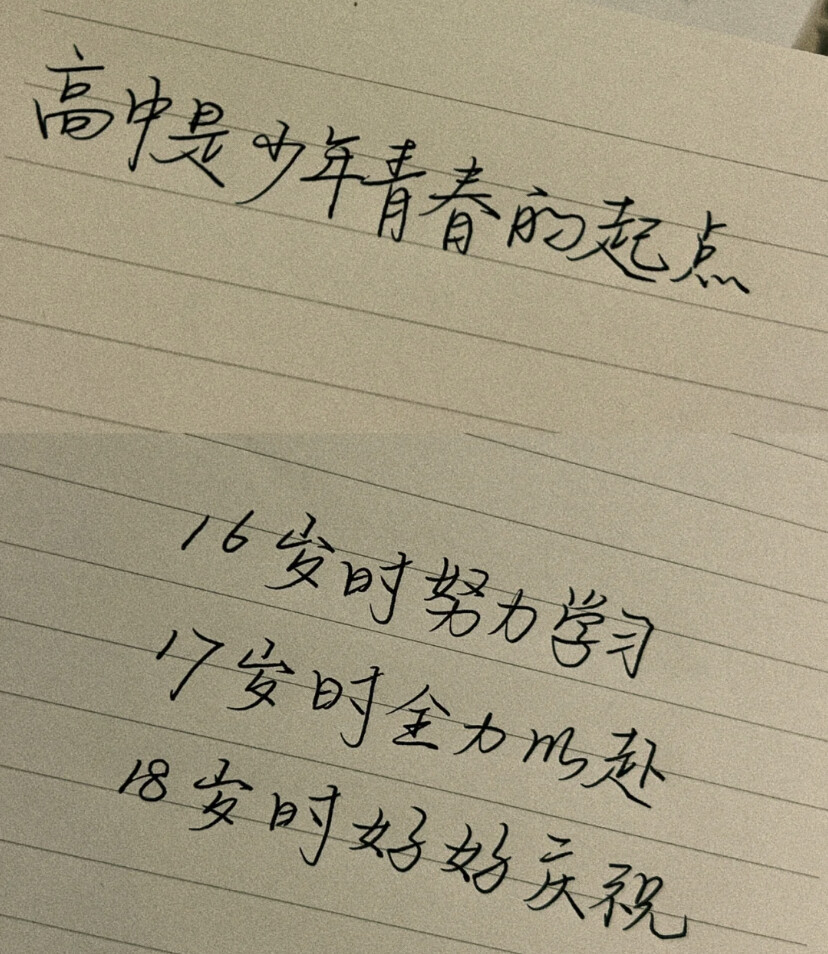 高中是少年青春的起点
16岁时努力学习
17岁时全力以赴
18岁时好好庆祝